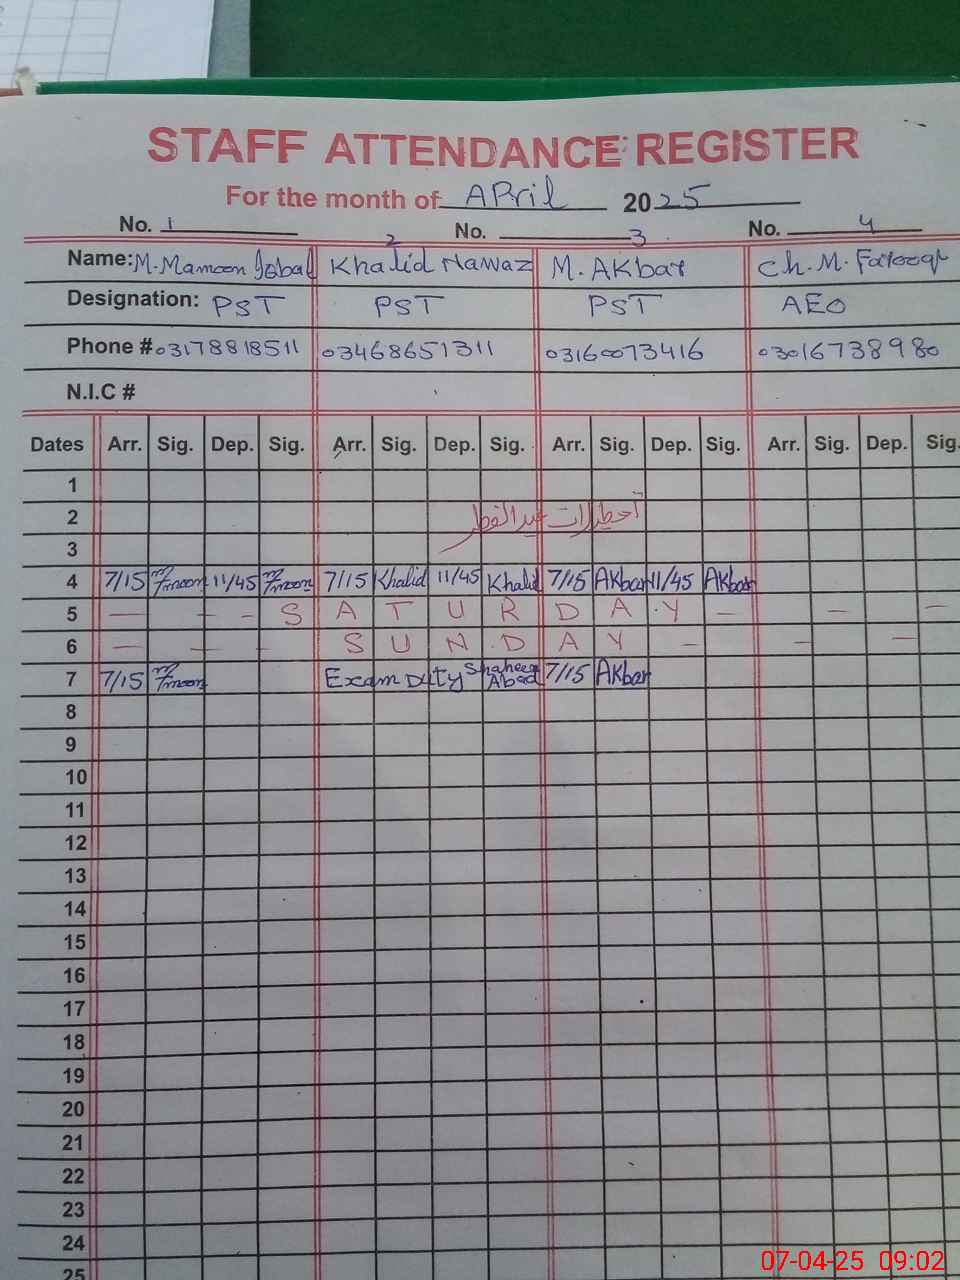 STAFF ATTENDANCE REGISTER
For the month of APRil 2025
No. 1 2 No. 3 No. 4
Name: M. Mamoon Iqbal Khalid Nawaz M. AKbar Ch. M. Farooq
Designation: PST PST PST AEO
Phone # 03178818511 03468651311 03160073416 03016738980
N.I.C #
Dates Arr. Sig. Dep. Sig. Arr. Sig. Dep. Sig. Arr. Sig. Dep. Sig. Arr. Sig. Dep. Sig.
1
2 عيد الفطر
3
4 7/15 Mmoon 11/45 Mmoon 7/15 Khalid 11/45 Khalid 7/15 AKbar 11/45 AKbar
5 — — - S A T U R D A Y — — —
6 — — - S U N D A Y — — —
7 7/15 Mmoon Exam Duty Shaheen Abad 7/15 AKbar
8
9
10
11
12
13
14
15
16
17
18
19
20
21
22
23
24
25
07-04-25 09:02